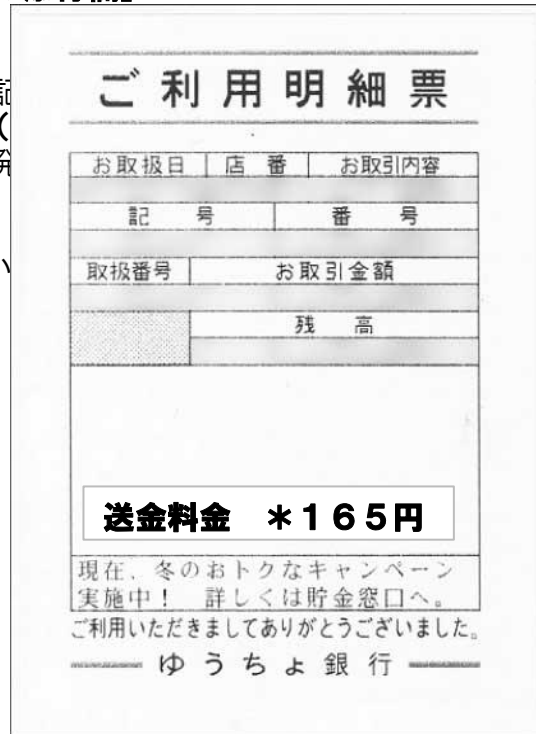 ご利用明細票
お取扱日 店番 お取引内容
記号 番号
取扱番号 お取引金額
残高
送金料金 ＊１６５円
現在、冬のおトクなキャンペーン
実施中！ 詳しくは貯金窓口へ。
ご利用いただきましてありがとうございました。
ゆうちょ銀行